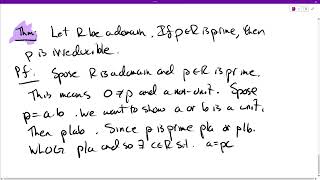 Thm: Let R be a domain. If p∈R is prime, then
p is irreducible.
Pf: Spose R is a domain and p∈R is prime.
This means 0≠p and a non-unit. Spose
p=a·b. We want to show a or b is a unit.
Then p|ab. Since p is prime p|a or p|b.
WLOG p|a and so ∃ c∈R s.t. a=pc